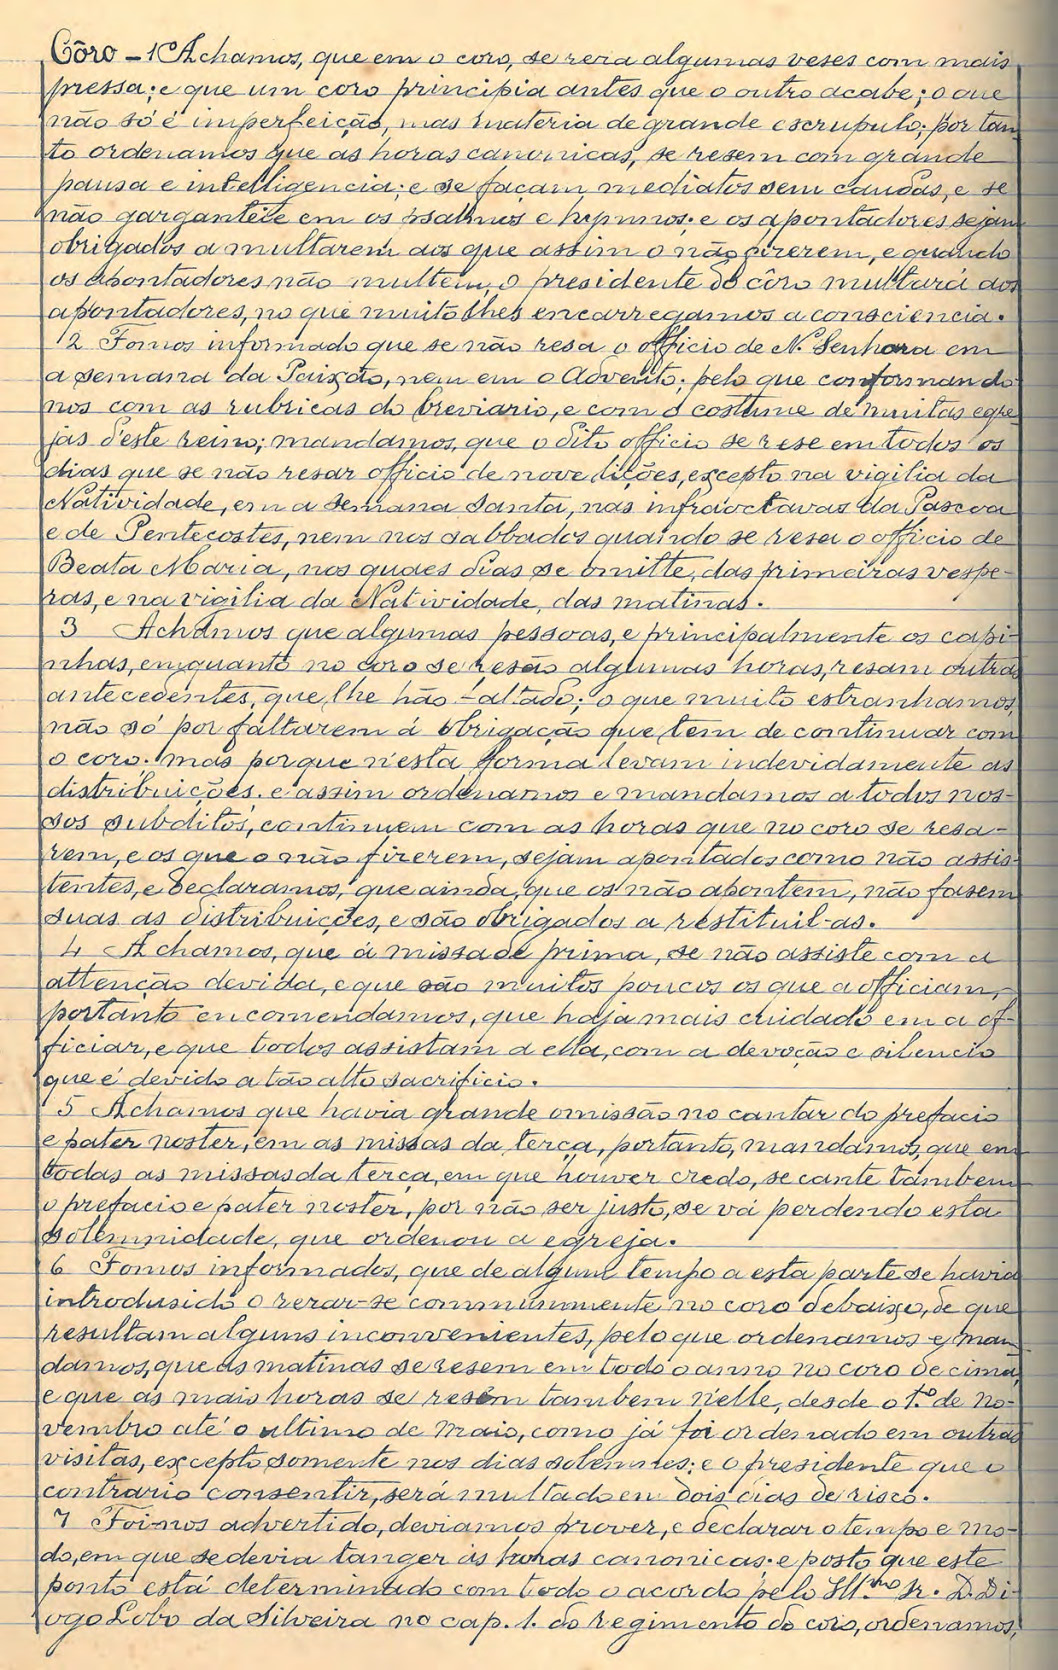 Côro – 1º Achamos, que em o coro, se reza algumas veses com mais
pressa; e que um coro principia antes que o outro acabe; o que
não só é imperfeição, mas materia de grande escrupulo; por tan
to ordenamos que as horas canonicas, se resem com grande
pausa e intelligencia; e se façam mediatos sem caudas, e se
não garganteie em os psalmos e hymnos; e os apontadores sejam
obrigados a multarem aos que assim o não fizerem, e quando
os apontadores não multem, o presidente do côro multará aos
apontadores, no que muito lhes encarregamos a consciencia.
2 Fomos informado que se não resa o officio de N. Senhora em
a semana da Paixão, nem em o Advento; pelo que conformando
nos com as rubricas do breviario, e com o costume de muitas egre
jas d'este reino; mandamos, que o dito officio se rese em todos os
dias que se não resar officio de nove lições, excepto na vigilia da
Natividade, em a semana santa, nas infraoctavas da Pascoa
e de Pentecostes, nem nos sabbados quando se resa o officio de
Beata Maria, nos quaes dias se omitte, das primeiras vespe-
ras, e na vigilia da Natividade, das matinas.
3 Achamos que algumas pessoas, e principalmente os capi-
nhas, emquanto no coro se resão algumas horas, resam outras
antecedentes, que lhe hão faltado; o que muito estranhamos,
não só por faltarem á obrigação que tem de continuar com
o coro. mas porque n'esta forma levam indevidamente as
distribuições. e assim ordenamos e mandamos a todos nos-
sos subditos, continuem com as horas que no coro se resa-
rem, e os que o não fizerem, sejam apontados como não assis-
tentes, e declaramos, que ainda, que os não apontem, não fasem
suas as distribuições, e são obrigados a restituil-as.
4 Achamos, que á missa de prima, se não assiste com a
attenção devida, e que são muitos poucos os que a officiam,-
portanto encomendamos, que haja mais cuidado em a of-
ficiar, e que todos assistam a ella, com a devoção e silencio
que é devido a tão alto sacrificio.
5 Achamos que havia grande omissão no cantar do prefacio
e pater noster, em as missas da terça, portanto, mandamos, que em
todas as missas da terça, em que houver credo, se cante tambem
o prefacio e pater noster, por não ser justo, se vá perdendo esta
solemnidade, que ordenou a egreja.
6 Fomos informados, que de algum tempo a esta parte se havia
introdusido o rezar-se commummente no coro debaixo, de que
resultam alguns inconvenientes, pelo que ordenamos e man
damos, que as matinas se resem em todo o anno no coro de cima,
e que as mais horas se resem tambem n'elle, desde o 1.º de No-
vembro até o ultimo de Maio, como já foi ordenado em outras
visitas, excepto somente nos dias solemnes; e o presidente que o
contrario consentir, será multado em dois dias de risco.
7 Foi-nos advertido, deviamos prover, e declarar o tempo e mo-
do, em que se devia tanger ás horas canonicas. e posto que este
ponto está determinado com todo o acordo pelo Ill.mo Sr. D. Di-
ogo Lobo da Silveira no cap. 1. do regimento do coro, ordenamos,